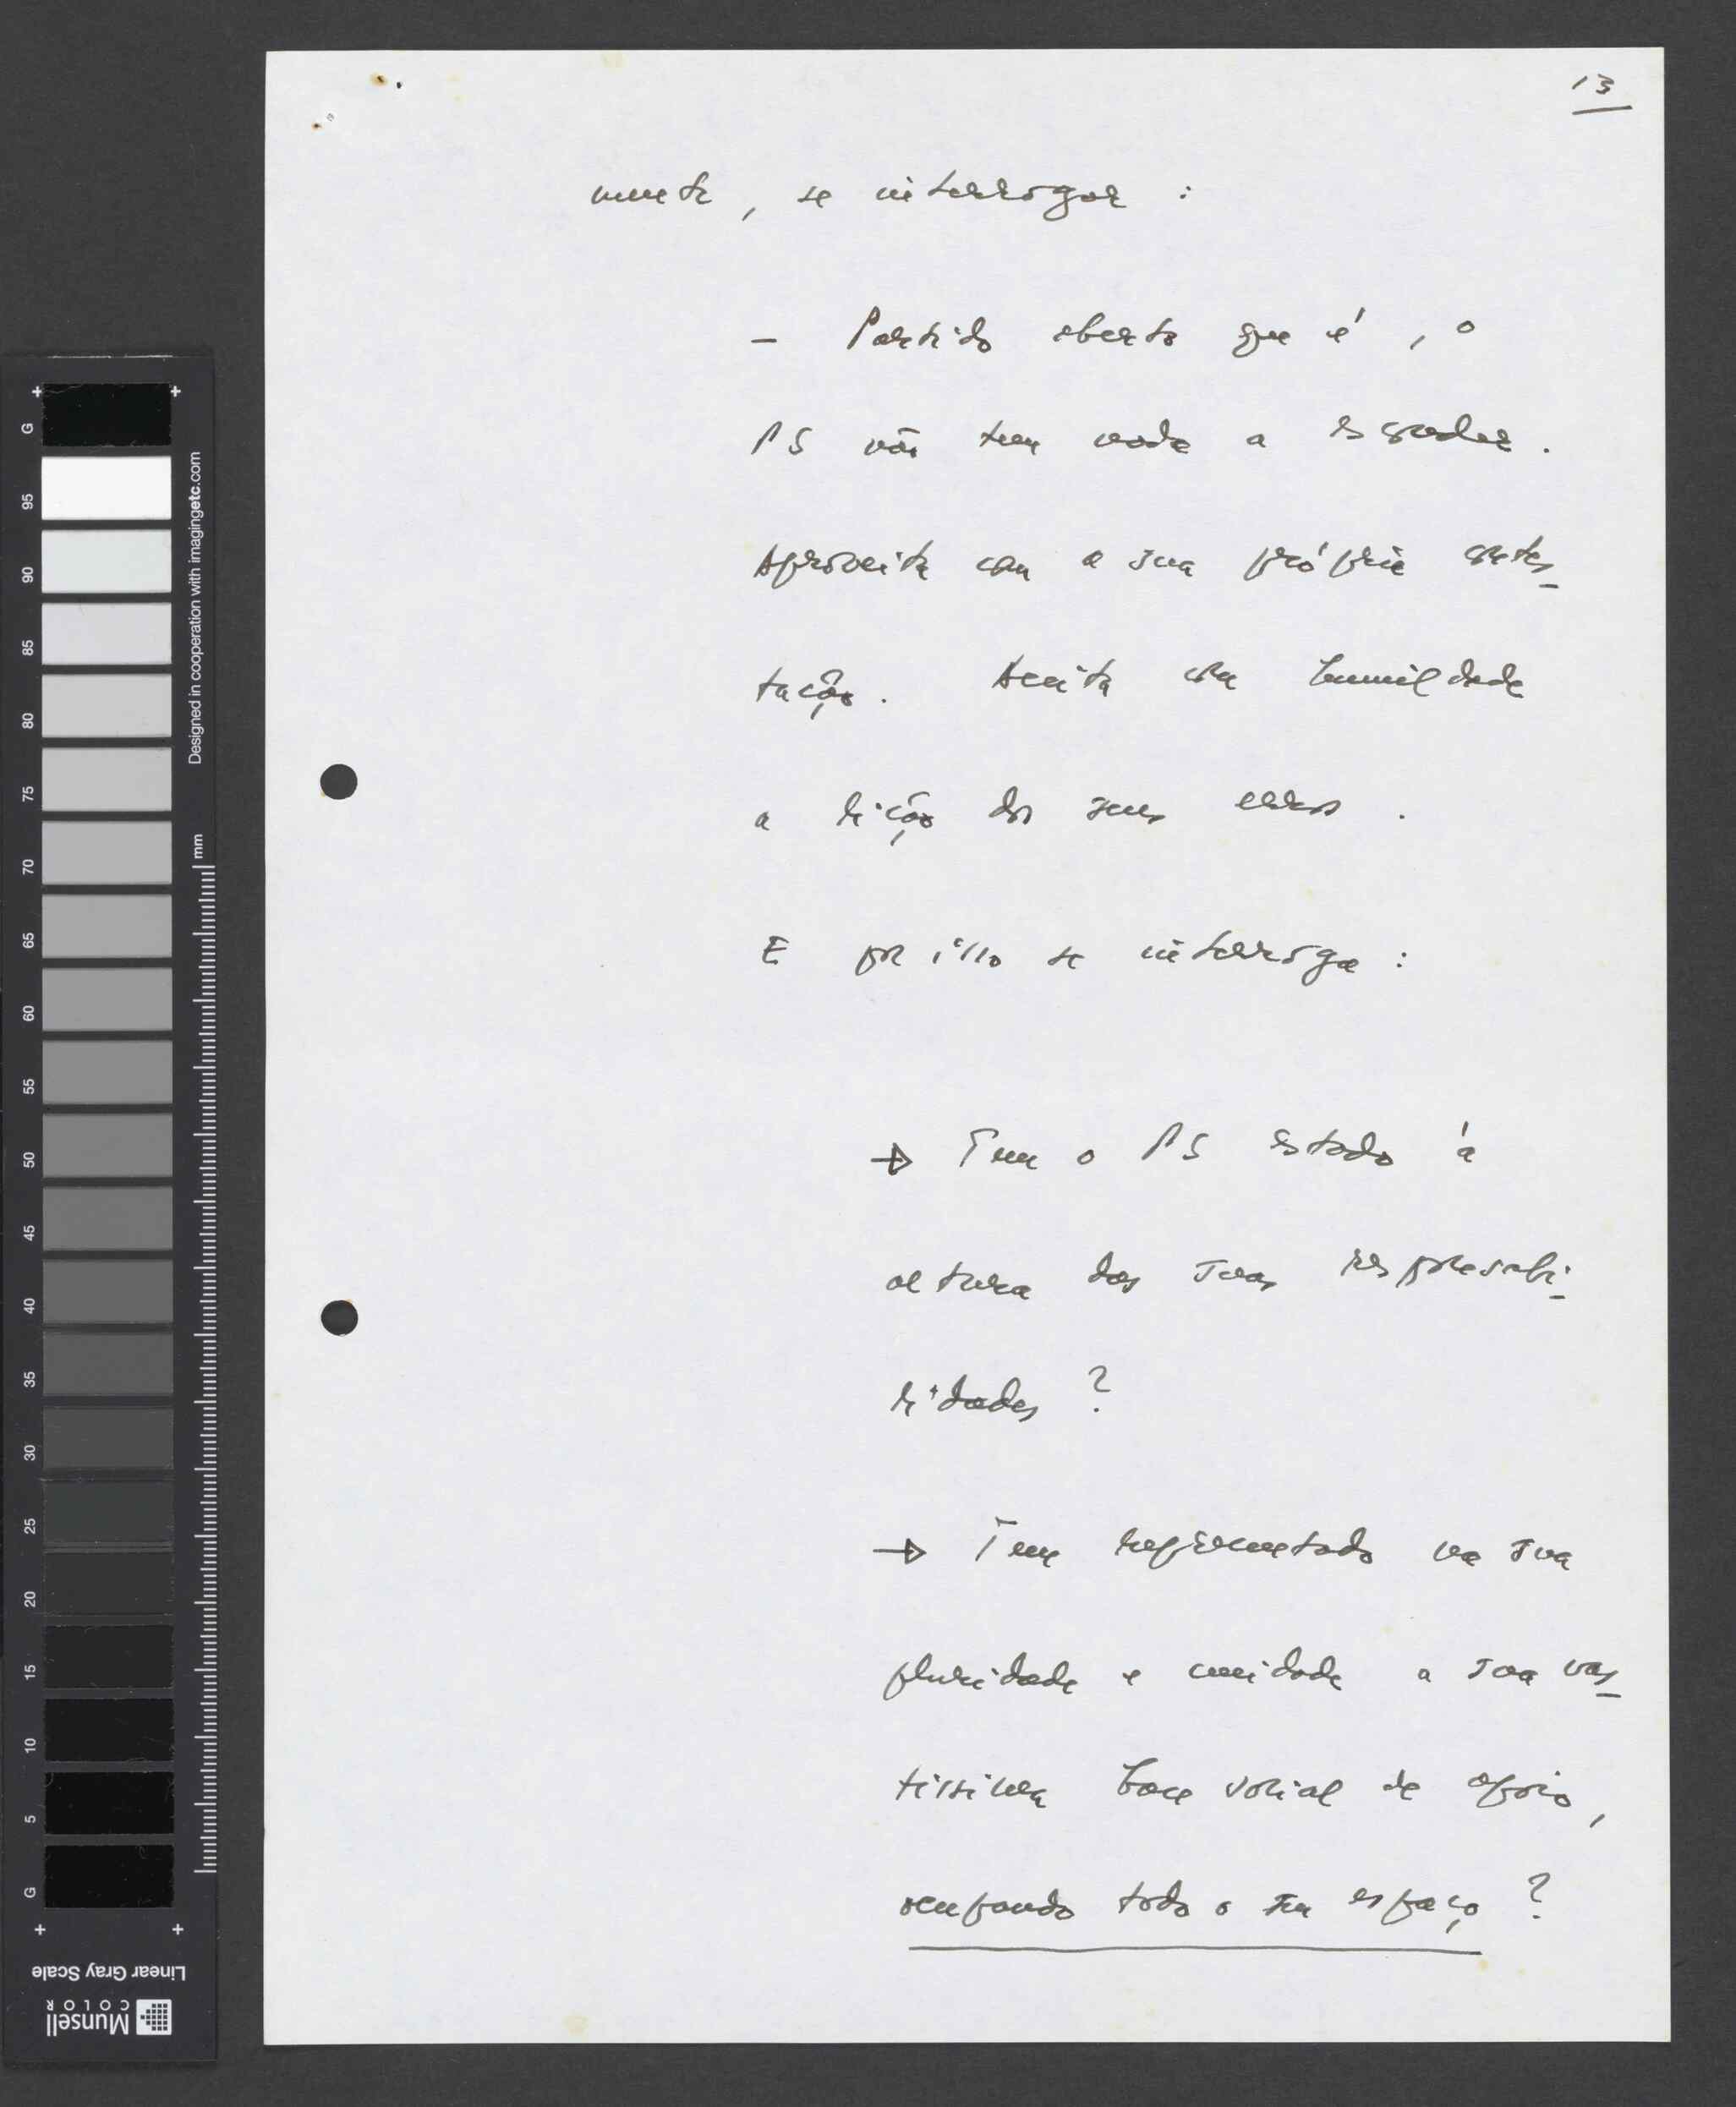 13
mente, se interrogar :
- Partido aberto que é, o
PS não tem nada a esconder.
Aproveita com a sua própria contes-
tação. Aceita com humildade
a lição dos seus erros.
E por isso se interroga :
→ Tem o PS estado à
altura das suas responsabi-
lidades ?
→ Tem representado na sua
pluridade e unidade a sua vas-
tíssima base social de apoio,
ocupando todo o seu espaço ?
G
95
90
85
80
75
70
65
60
55
50
45
40
35
30
25
20
15
10
5
G
mm
Designed in cooperation with imagingetc.com
Linear Gray Scale
Munsell
COLOR